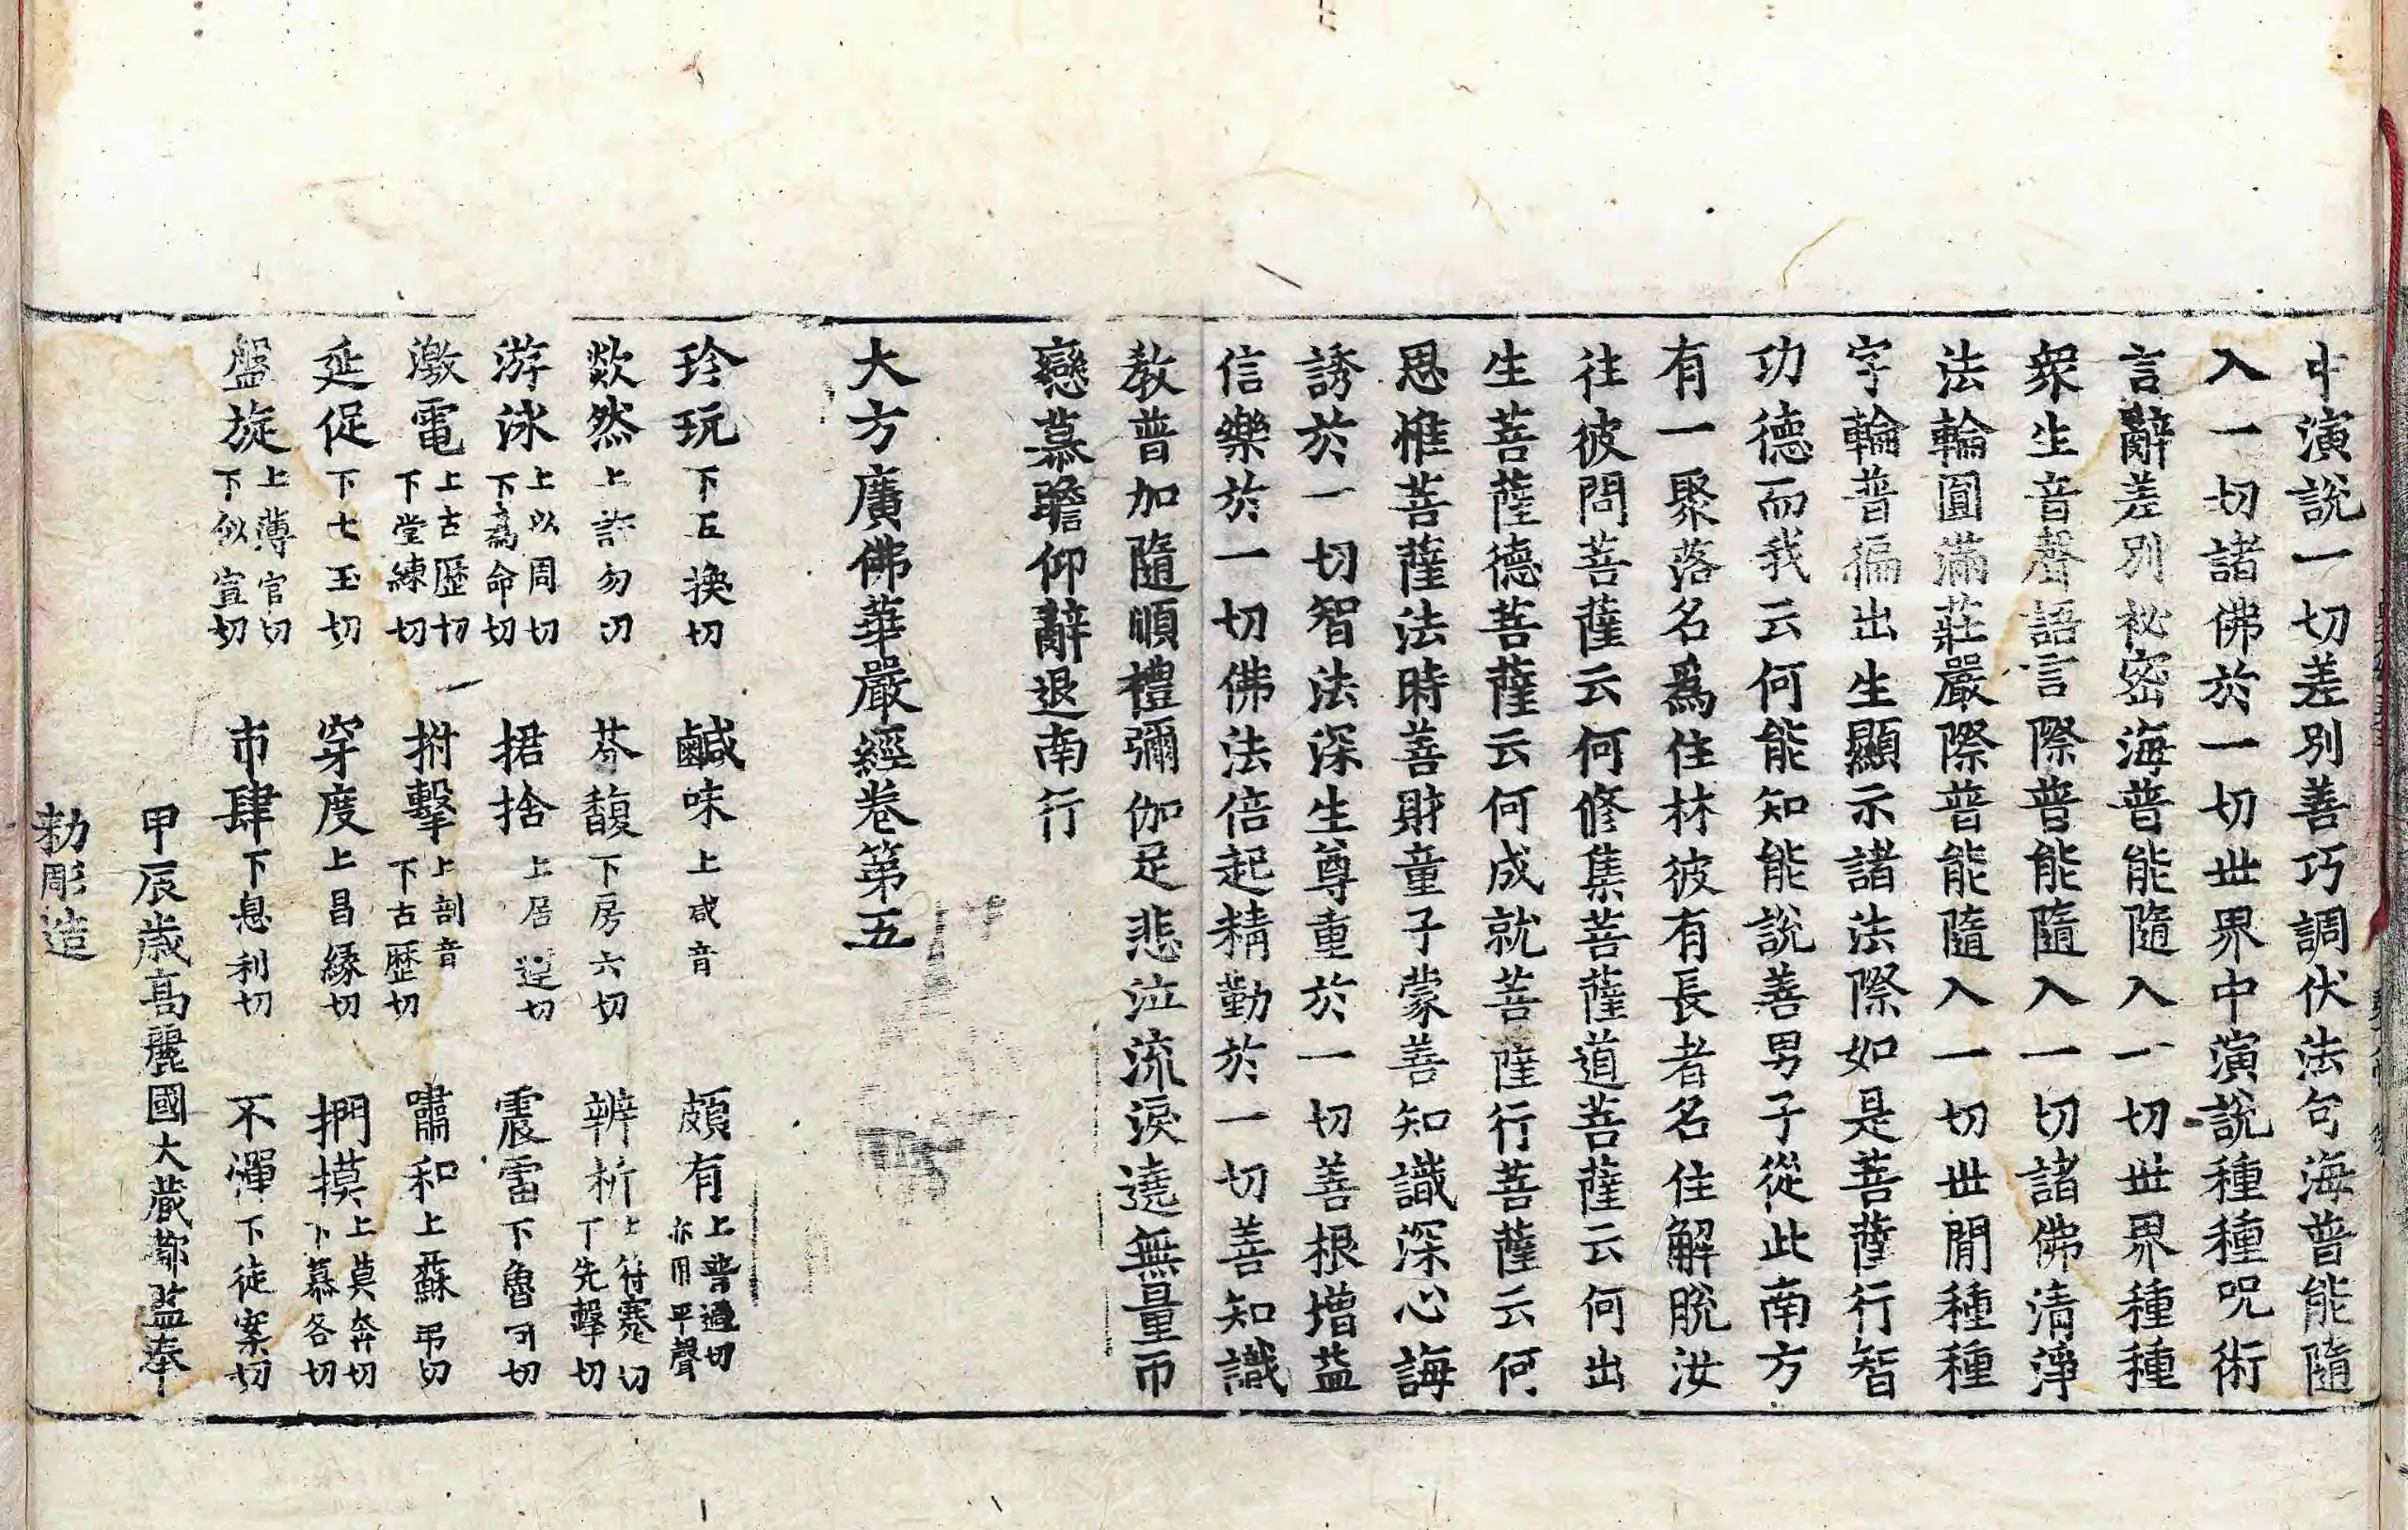 中演說一切差別善巧調伏法句海普能隨
入一切諸佛於一切世界中演說種種呪術
言辭差別祕密海普能隨入一切世界種種
衆生音聲語言際普能隨入一切諸佛清淨
法輪圓滿莊嚴際普能隨入一切世閒種種
字輪普徧出生顯示諸法際如是菩薩行智
功德而我云何能知能說善男子從此南方
有一聚落名爲住林彼有長者名住解脫汝
往彼問菩薩云何修集菩薩道菩薩云何出
生菩薩德菩薩云何成就菩薩行菩薩云何
思惟菩薩法時善財童子蒙善知識深心誨
誘於一切智法深生尊重於一切善根增益
信樂於一切佛法倍起精勤於一切善知識
敎普加隨順禮彌伽足悲泣流淚遶無量帀
戀慕瞻仰辭退南行
大方廣佛華嚴經卷第五
珍玩下五換切 鹹味上咸音 頗有上普過切亦用平聲
欻然上許勿切 芬馥下房六切 辨析上符蹇切下先擊切
游泳上以周切下爲命切 捃捨上居運切 震雷下魯回切
激電上古歷切下堂練切 拊擊上剖音下古歷切 嘯和上蘇弔切
延促下七玉切 穿度上昌緣切 捫摸上莫奔切下慕各切
盤旋上薄官切下似宣切 市肆下息利切 不憚下徒案切
甲辰歲高麗國大藏都監奉
勅彫造